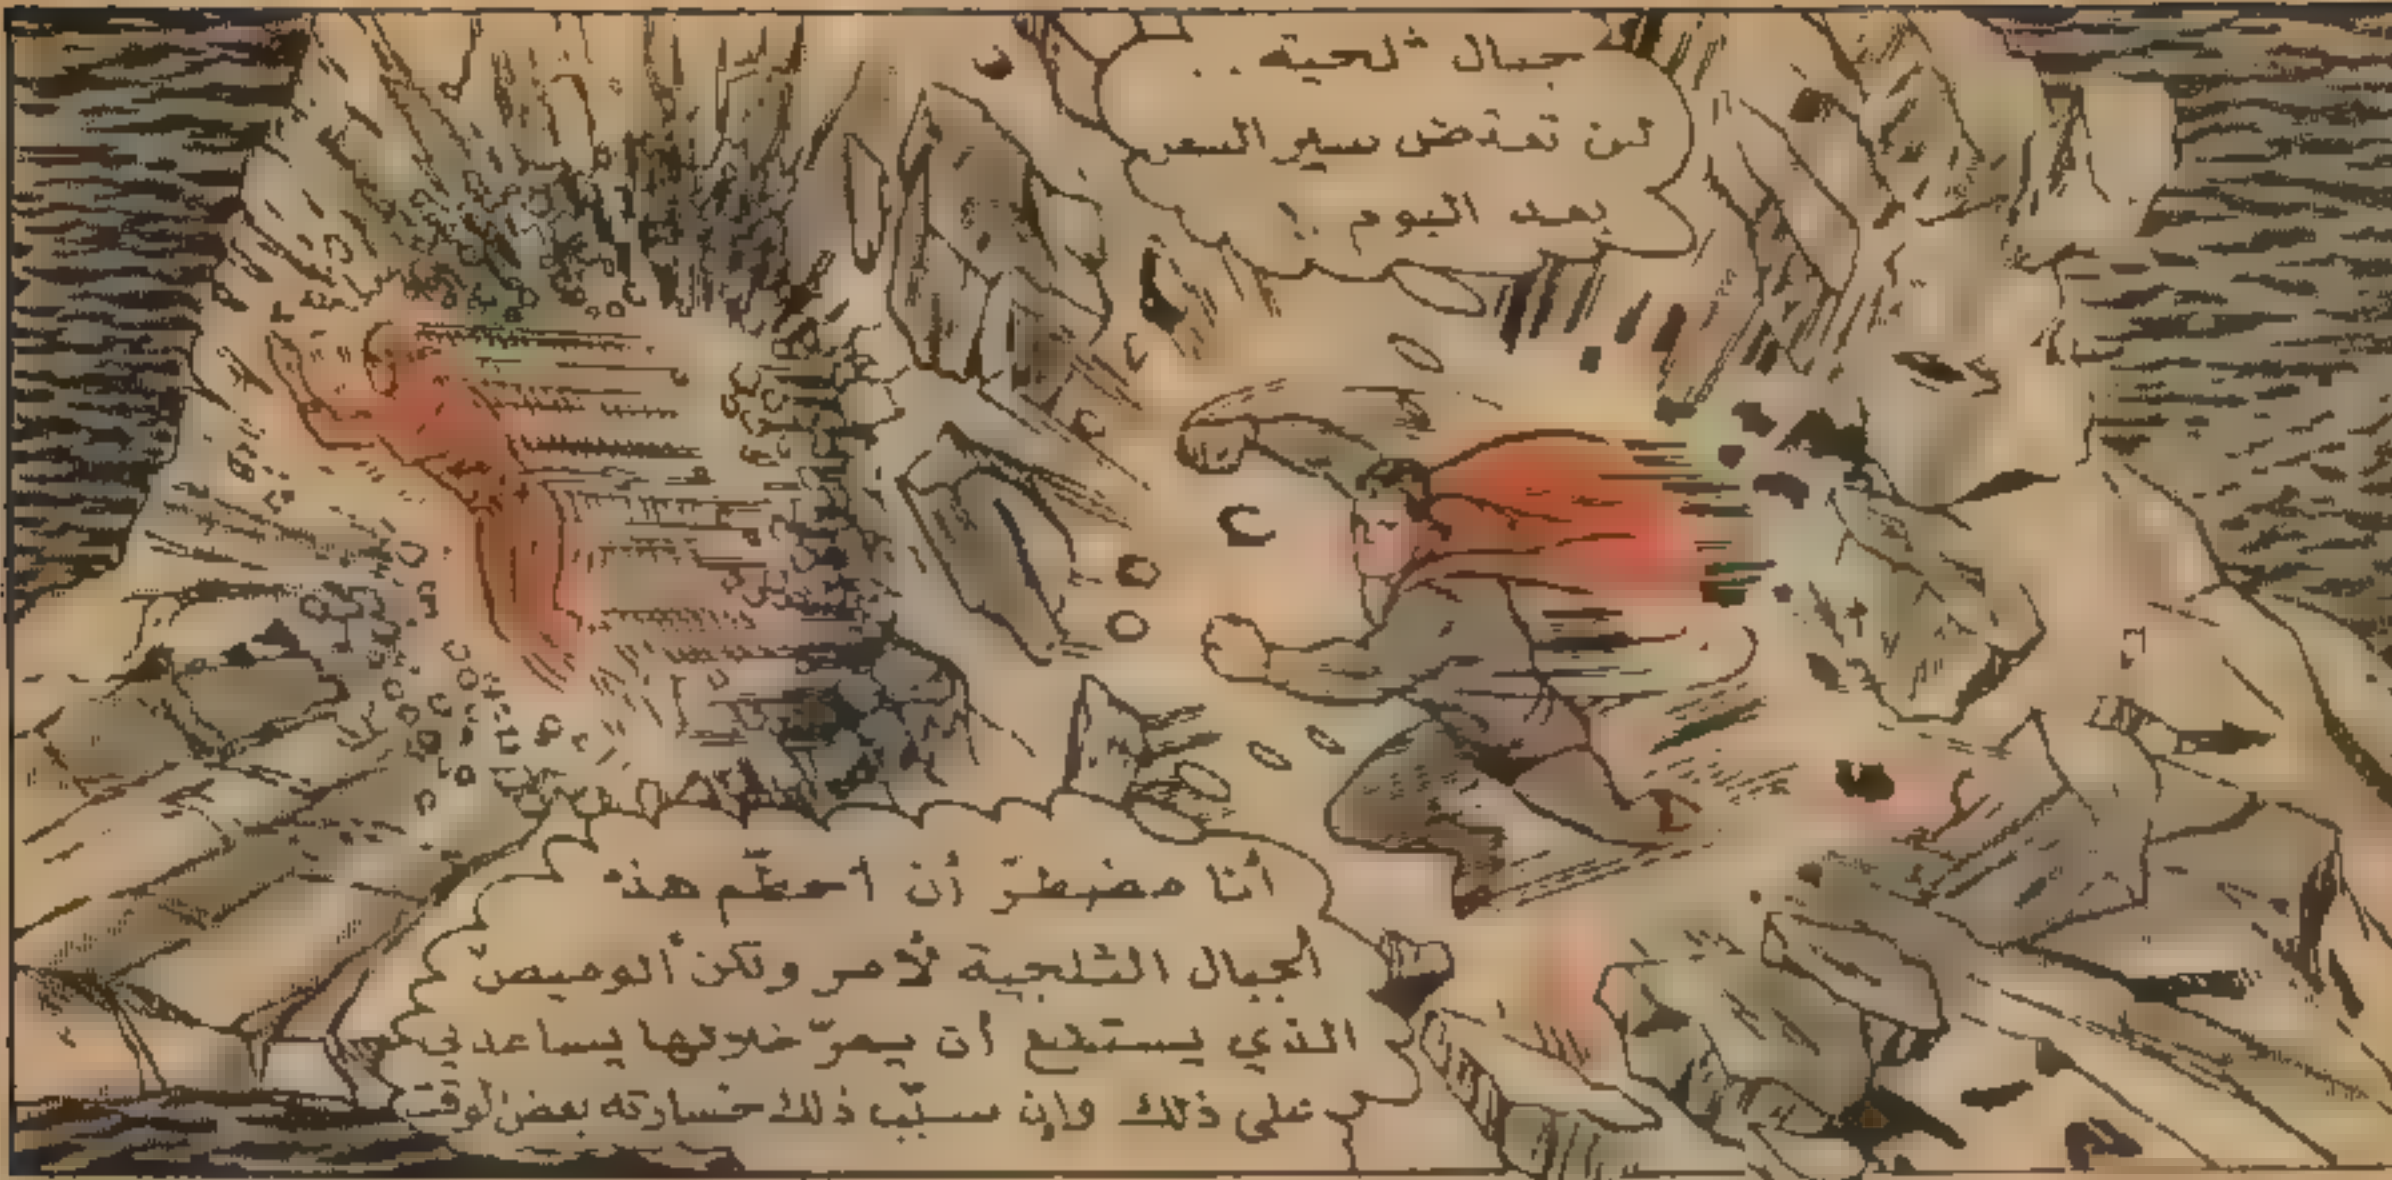 جبال ثلجية ..
لن تعترض سير السفن
بعد اليوم !
أنا مضطرّ أن أحطّم هذه
الجبال الثلجية لأمر ولكن الوميض
الذي يستطيع أن يمرّ خلالها يساعدني
على ذلك وإن سبّب ذلك خسارته بعض الوقت